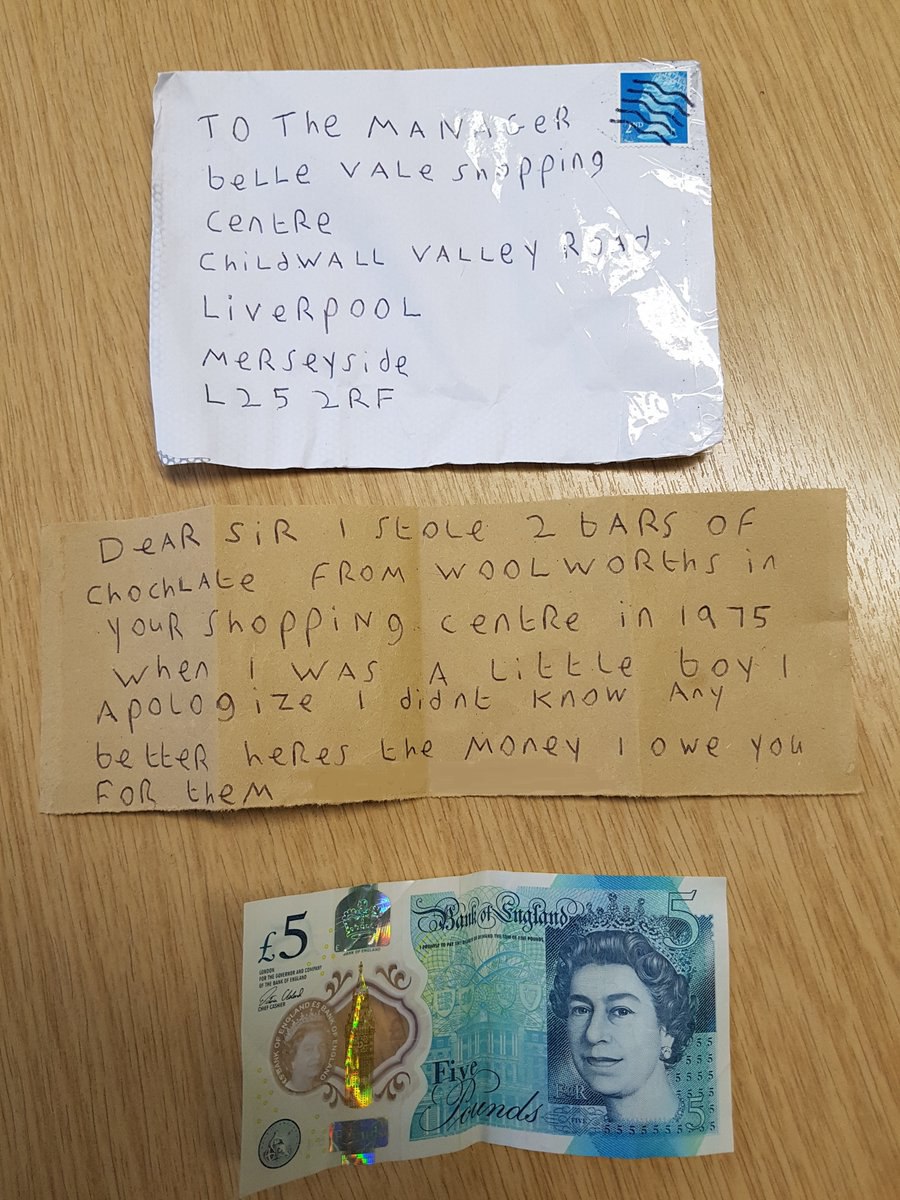 TO The MANAGeR
beLLe VALe shopping
CentRe
ChiLdWALL VALLey ROAd
LiveRpOOL
MeRseyside
L25 2RF
2ND
DeAR SiR I StOLe 2 bARS OF
ChOChLAte FROM WOOLWORthS in
yOUR Shopping CentRe in 1975
when I WAS A LittLe boy I
ApoLogize I didnt know Any
better heRes the Money I owe you
FOR theM
£5
Bank of England
5
BANK OF ENGLAND
I PROMISE TO PAY THE BEARER ON DEMAND THE SUM OF FIVE POUNDS
LONDON
FOR THE GOVERNOR AND COMPANY
OF THE BANK OF ENGLAND
CHIEF CASHIER
£5 BANK OF ENGLAND £5 BANK OF ENGLAND
Five
Pounds
E II R
FIVE
5